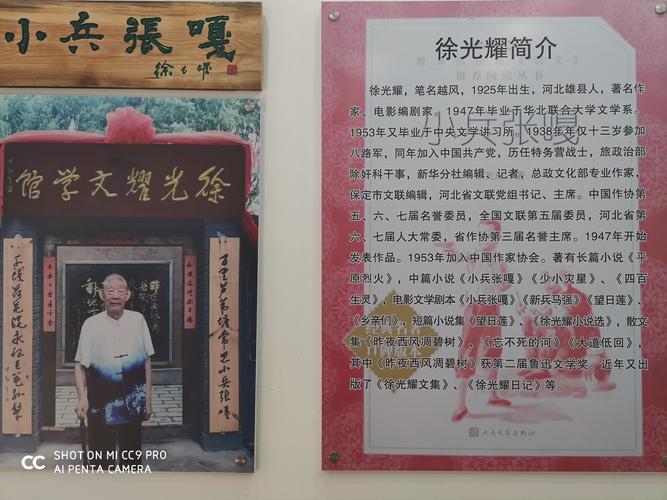 小兵張嘎
徐光耀
徐光耀文学館
徐光耀简介
徐光耀，笔名越风，1925年出生，河北雄县人，著名作
家、电影编剧家。1947年毕业于华北联合大学文学系。
1953年又毕业于中央文学讲习所。1938年年仅十三岁参加
八路军，同年加入中国共产党，历任特务营战士，旅政治部
除奸科干事，新华分社编辑、记者，总政文化部专业作家，
保定市文联编辑，河北省文联党组书记、主席。中国作协第
五、六、七届名誉委员，全国文联第五届委员，河北省第
六、七届人大常委，省作协第三届名誉主席。1947年开始
发表作品。1953年加入中国作家协会。著有长篇小说《平
原烈火》，中篇小说《小兵张嘎》《少小灾星》、《四百
生灵》，电影文学剧本《小兵张嘎》《新兵马强》《望日莲》、
《乡亲们》，短篇小说集《望日莲》、《徐光耀小说选》，散文
集《昨夜西风凋碧树》、《忘不死的河》《大道低回》，
其中《昨夜西风凋碧树》获第二届鲁迅文学奖。近年又出
版了《徐光耀文集》、《徐光耀日记》等。
小兵张嘎
人民文学出版社
SHOT ON MI CC9 PRO
AI PENTA CAMERA